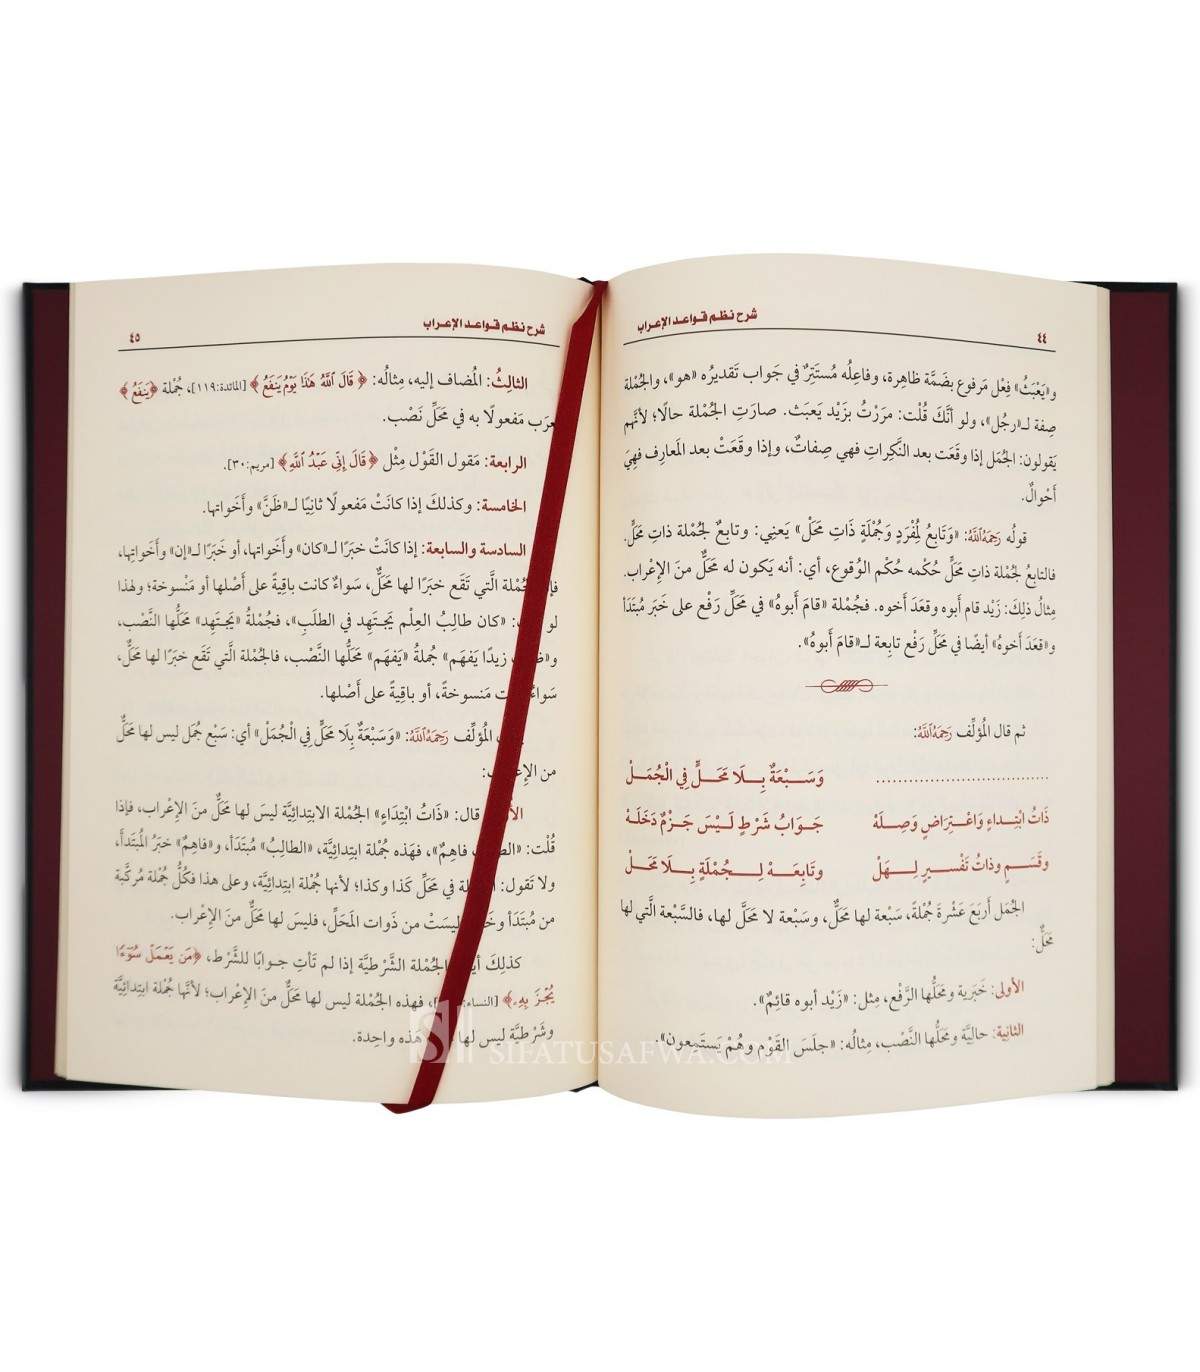 ٤٤
شرح نظم قواعد الإعراب
و«يَعْبَثُ» فِعْل مَرفوع بضَمَّة ظاهِرة، وفاعِلُه مُستَتِرٌ في جَواب تَقديرُه «هو»، والجُمْلة
صِفة لـ«رجُل»، ولو أنَّكَ قُلْت: مرَرْتُ بزَيْد يَعبَث. صارَتِ الجُمْلة حالًا؛ لأنَّهم
يَقولون: الجُمَل إذا وقَعَت بعد النَّكِراتِ فهي صِفاتٌ، وإذا وقَعَتْ بعد المَعارِف فهِيَ
أَحْوالٌ.
قولُه رَحِمَهُ اللَّهُ: «وَتَابِعُ لِمُفْرَدٍ وَجُمْلَةٍ ذَاتِ مَحَلْ» يَعنِي: وتابِعٌ لجُمْلة ذاتِ مَحَلٍّ.
فالتابعُ لجُمْلة ذاتِ مَحَلٍّ حُكْمه حُكْم الوُقوع، أي: أنه يَكون له مَحَلٌّ منَ الإِعْراب.
مِثالُ ذلِكَ: زَيْد قام أَبوه وقعَدَ أَخوه. فجُمْلة «قامَ أَبوهُ» في مَحَلِّ رَفْع على خَبَر مُبتَدَأ
و«قعَدَ أَخوهُ» أيضًا في مَحَلِّ رَفْع تابِعة لـ«قامَ أَبوهُ».
ثم قال المُؤلِّف رَحِمَهُ اللَّهُ:
.................................. وَسَبْعَةٌ بِلَا مَحَلٍّ فِي الْجُمَلْ
ذَاتُ ابْتِداءٍ وَاعْتِرَاضٍ وَصِلَهْ جَوَابُ شَرْطٍ لَيْسَ جَزْمٌ دَخَلَهْ
وقَسَمٍ وذاتُ تَفْسِيرٍ لِهَلْ وتَابِعَهْ لِجُمْلَةٍ بِلَا مَحَلْ
الجُمَل أَربَعَ عَشْرةَ جُملةً، سَبْعة لها مَحَلٌّ، وسَبْعة لا مَحَلَّ لها، فالسَّبْعة الَّتي لها
مَحَلٌّ:
الأولى: خبَرية ومَحَلُّها الرَّفْع، مِثل: «زَيْد أبوه قائِمٌ».
الثانية: حالِيَّة ومَحَلُّها النَّصْب، مِثالُه: «جلَسَ القَوْم وهُمْ يَستَمِعون».
شرح نظم قواعد الإعراب
٤٥
الثالِثُ: المُضاف إليه، مِثالُه: ﴿قَالَ اللَّهُ هَٰذَا يَوْمُ يَنفَعُ﴾ [المائدة:١١٩]، جُمْلة ﴿يَنفَعُ﴾
عرَب مَفعولًا به في مَحَلِّ نَصْب.
الرابعة: مَقول القَوْل مِثْل ﴿قَالَ إِنِّي عَبْدُ اللَّهِ﴾ [مريم:٣٠].
الخامسة: وكذلكَ إذا كانَتْ مَفعولًا ثانِيًا لـ«ظَنَّ» وأَخَواتها.
السادسة والسابعة: إذا كانَتْ خبَرًا لـ«كان» وأَخَواتها، أو خبَرًا لـ«إن» وأَخَواتِها،
الجُمْلة الَّتي تَقَع خبَرًا لها مَحَلٌّ، سَواءٌ كانت باقِيةً على أَصْلها أو مَنْسوخة؛ ولهذا
لو : «كان طالِبُ العِلْم يَجتَهِد في الطلَبِ»، فجُمْلةُ «يَجتَهِد» مَحَلُّها النَّصْب،
زيدًا يَفهَم» جُملةُ «يَفهَم» مَحَلُّها النَّصْب، فالجُمْلة الَّتي تَقَع خبَرًا لها مَحَلٌّ،
سَواءٌ مَنسوخةً، أو باقِيةً على أَصْلها.
المُؤلِّف رَحِمَهُ اللَّهُ: «وَسَبْعَةٌ بِلَا مَحَلٍّ فِي الْجُمَلْ» أي: سَبْع جُمَل ليس لها مَحَلٌّ
من الإِعْراب:
قال: «ذَاتُ ابْتِداءٍ» الجُمْلة الابتِدائيَّة ليسَ لها مَحَلٌّ منَ الإِعْراب، فإذا
قُلْت: فاهِمٌ»، فهَذه جُمْلة ابتِدائِيَّة، «الطالِبُ» مُبتَدَأ، و«فاهِمٌ» خبَرُ المُبتَدأ،
ولا تَقول: في مَحَلِّ كَذا وكذا؛ لأنها جُمْلة ابتِدائِيَّة، وعلى هذا فكُلُّ جُمْلة مُركَّبة
من مُبتَدَأ وخَبَر ليسَتْ من ذَوات المَحَلِّ، فليسَ لها مَحَلٌّ منَ الإِعْراب.
كذلِكَ الجُمْلة الشَّرْطيَّة إذا لم تَأتِ جوابًا للشَّرْط، ﴿مَن يَعْمَلْ سُوٓءًا
يُجْزَ بِهِ﴾ [النساء: ]، فهذه الجُمْلة ليس لها مَحَلٌّ منَ الإِعْراب؛ لأنَّها جُمْلة ابتِدائِيَّة
وشَرْطيَّة ليس لها هَذه واحِدة.
SIFATUSAFWA.COM